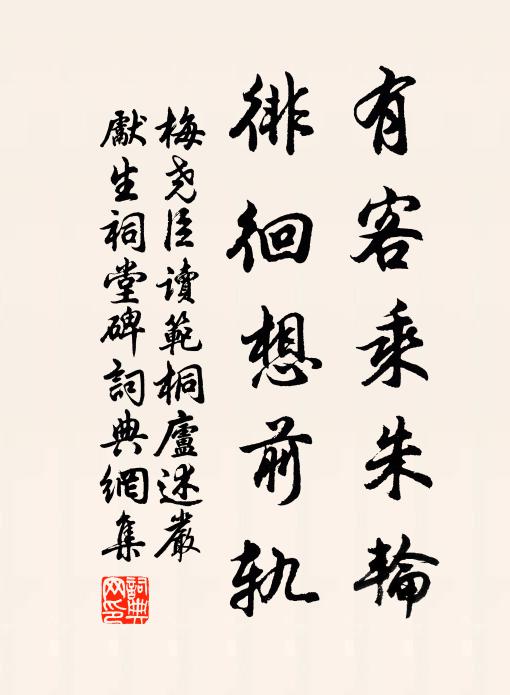 有客乘朱輪
徘徊想前軌
梅堯臣讀範桐廬述嚴
獻生祠堂碑詞典網集